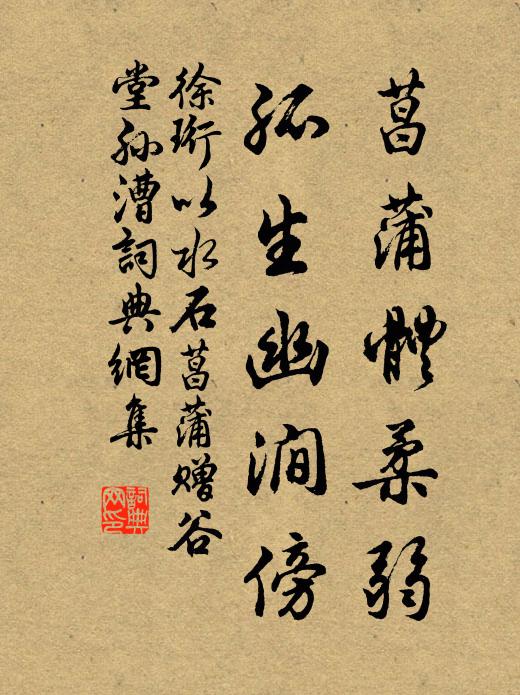 菖蒲體柔弱
孤生幽澗傍
徐珩以水石菖蒲贈谷
堂孙漕詞典網集
詞典網印